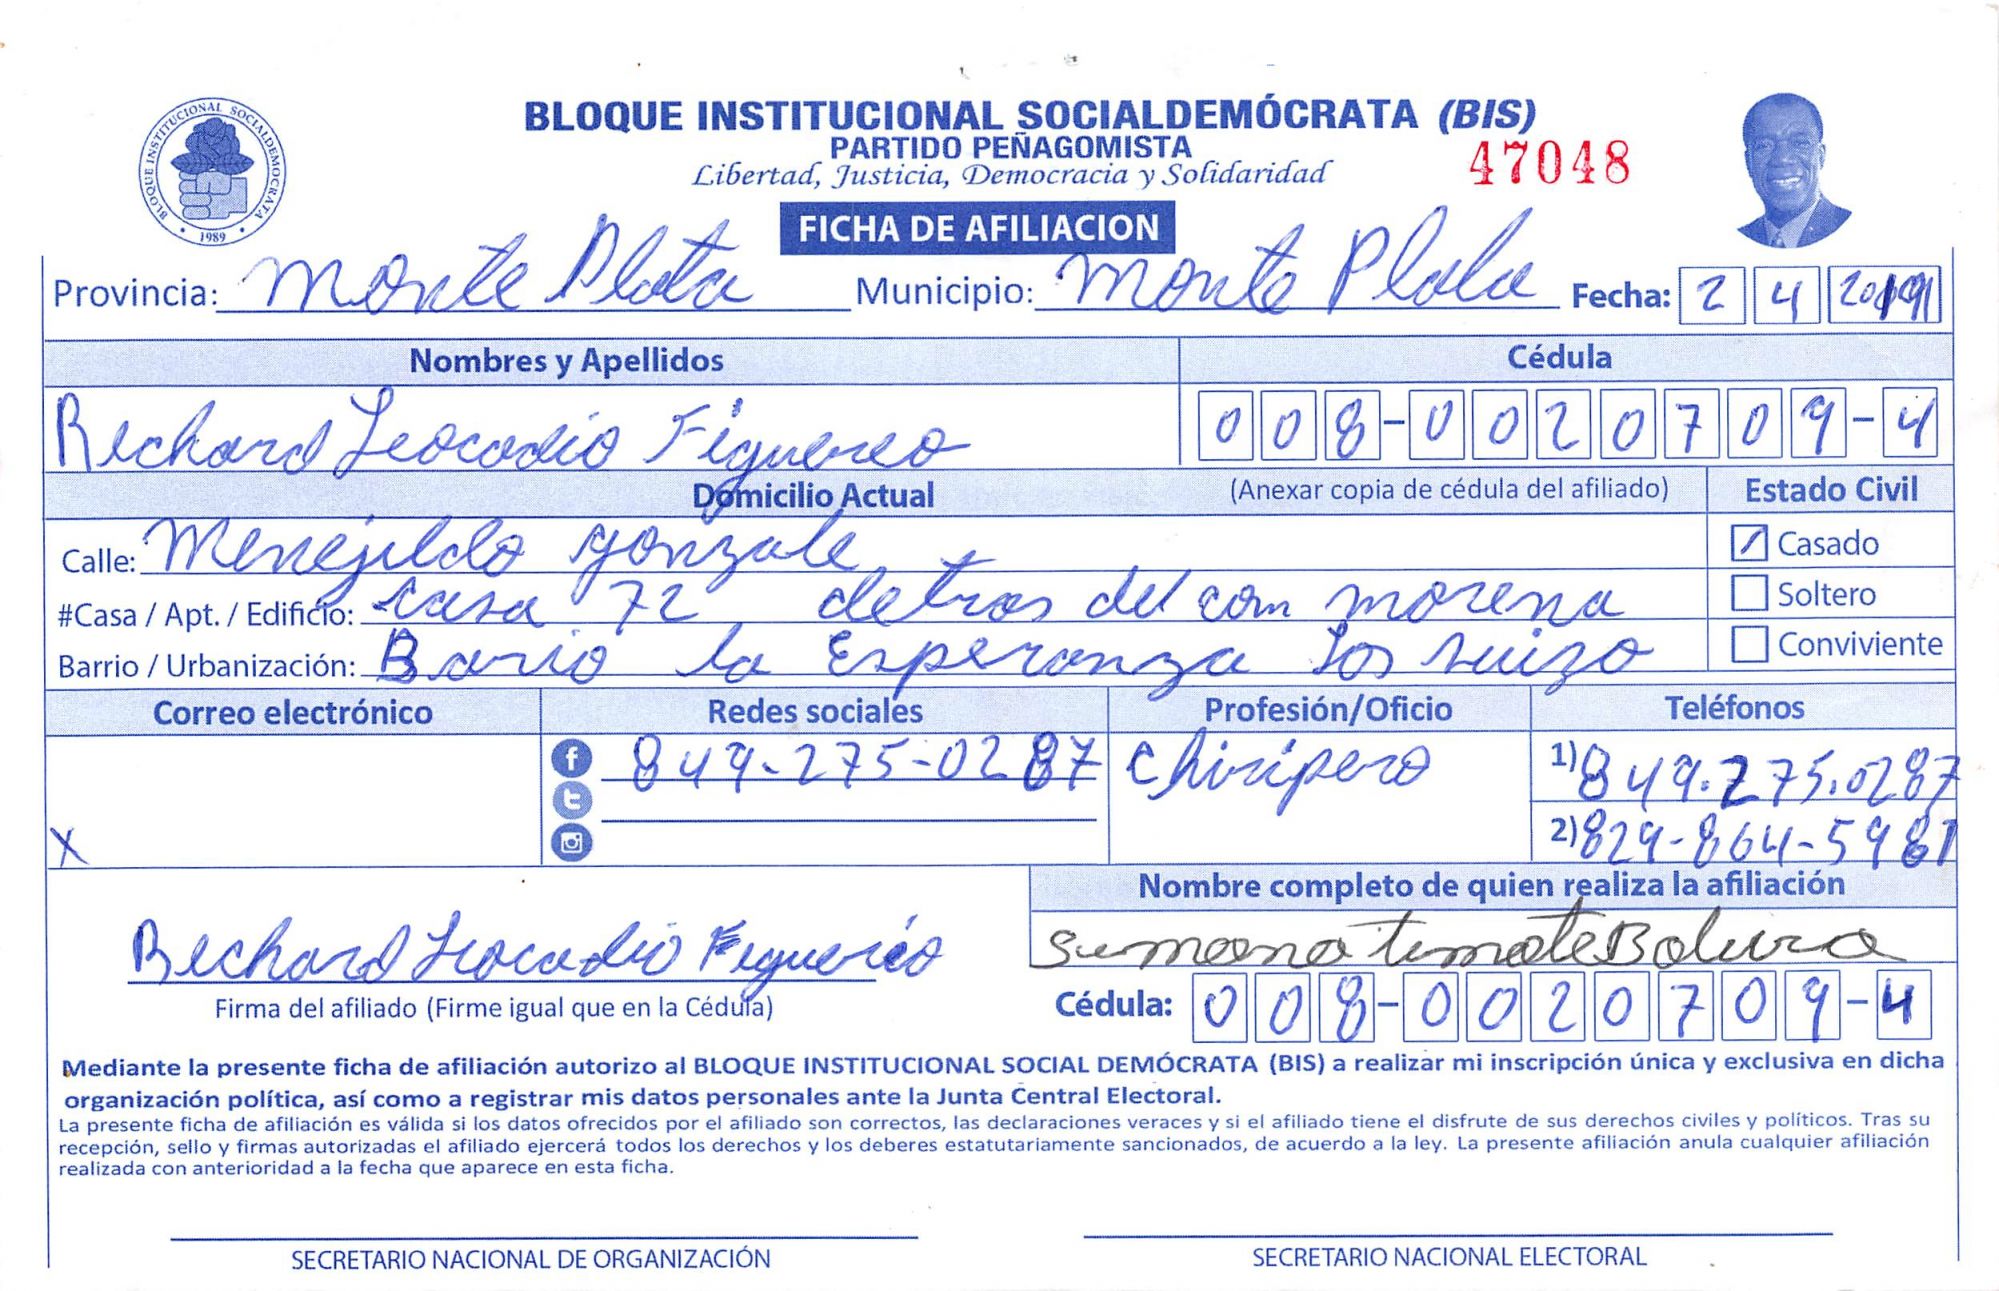 BLOQUE INSTITUCIONAL SOCIALDEMOCRATA
1989
BLOQUE INSTITUCIONAL SOCIALDEMÓCRATA (BIS)
PARTIDO PEÑAGOMISTA
47048
Libertad, Justicia, Democracia y Solidaridad
FICHA DE AFILIACION
Provincia: Monte Plata Municipio: Monte Plata Fecha: 2 4 2019
Nombres y Apellidos Cédula
Rechard Leocadio Figuereo 008-0020709-4
Domicilio Actual (Anexar copia de cédula del afiliado) Estado Civil
Calle: Menejildo gonzale Casado
#Casa / Apt. / Edificio: casa 72 detras del com morena Soltero
Barrio / Urbanización: Bario la Esperanza Los suizo Conviviente
Correo electrónico Redes sociales Profesión/Oficio Teléfonos
849-275-0287 Chiripero 1) 849.275.0287
X 2) 829-864-5981
Nombre completo de quien realiza la afiliación
Rechard Leocadio Figuereo
Firma del afiliado (Firme igual que en la Cédula) Cédula: 008-0020709-4
Mediante la presente ficha de afiliación autorizo al BLOQUE INSTITUCIONAL SOCIAL DEMÓCRATA (BIS) a realizar mi inscripción única y exclusiva en dicha
organización política, así como a registrar mis datos personales ante la Junta Central Electoral.
La presente ficha de afiliación es válida si los datos ofrecidos por el afiliado son correctos, las declaraciones veraces y si el afiliado tiene el disfrute de sus derechos civiles y políticos. Tras su
recepción, sello y firmas autorizadas el afiliado ejercerá todos los derechos y los deberes estatutariamente sancionados, de acuerdo a la ley. La presente afiliación anula cualquier afiliación
realizada con anterioridad a la fecha que aparece en esta ficha.
SECRETARIO NACIONAL DE ORGANIZACIÓN SECRETARIO NACIONAL ELECTORAL